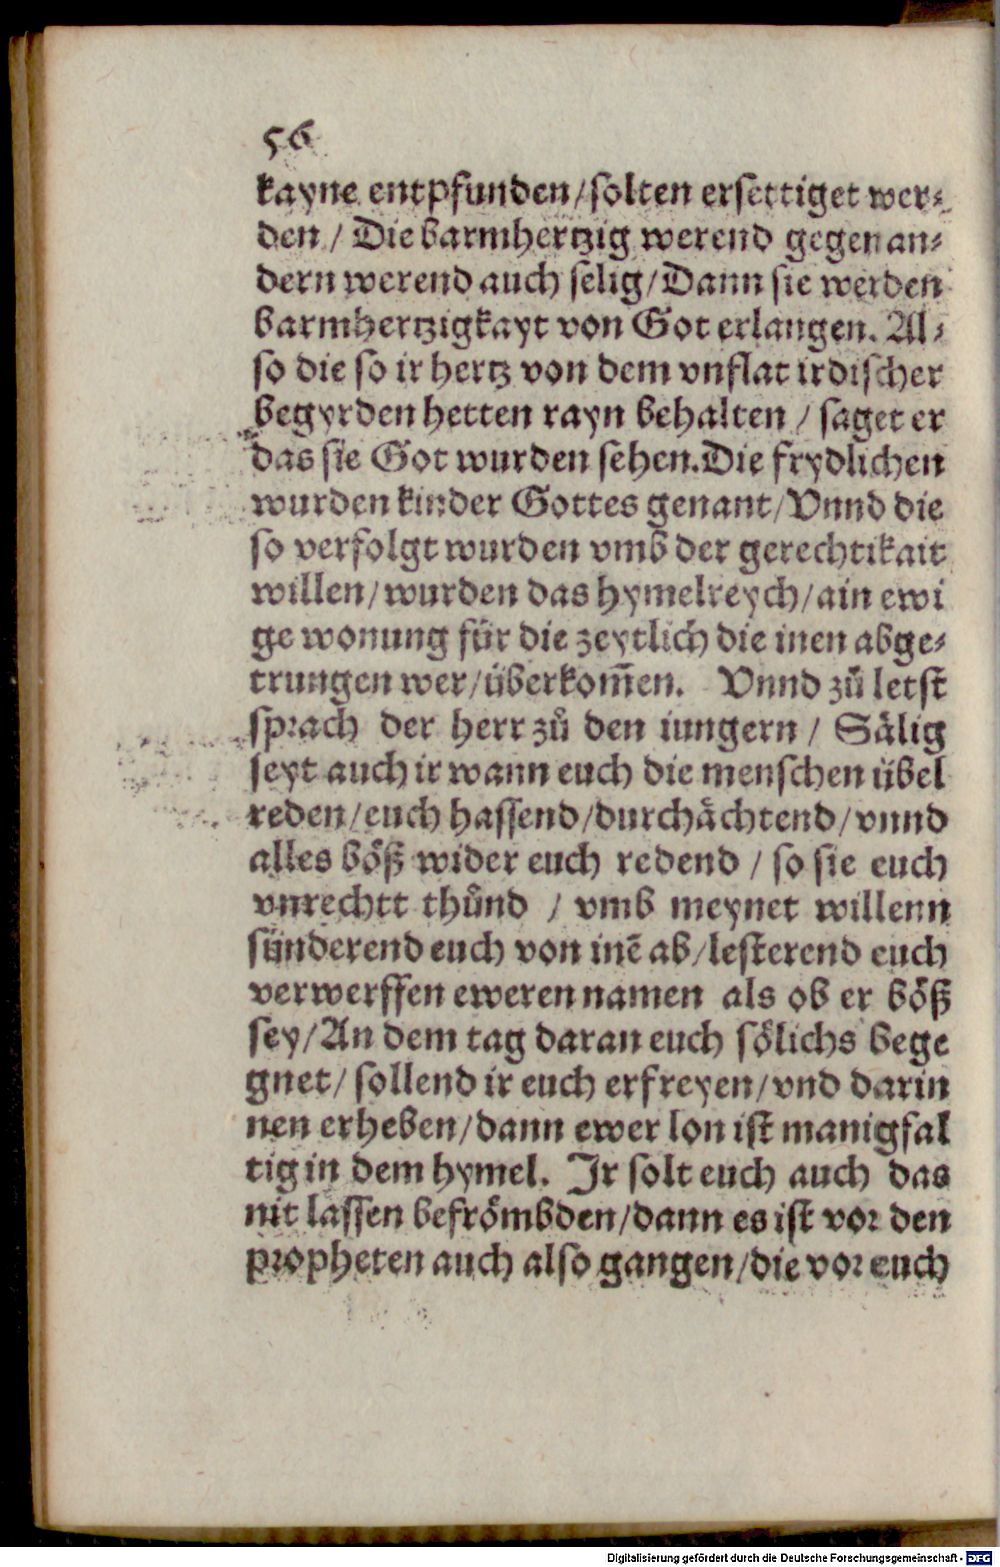 56
kayne entpfunden/solten ersettiget wer⸗
den / Die barmhertzig werend gegen an⸗
dern werend auch selig/Dann sie werden
barmhertzigkayt von Got erlangen. Al⸗
so die so ir hertz von dem vnflat irdischer
begyrden hetten rayn behalten / saget er
das sie Got wurden sehen.Die frydlichen
wurden kinder Gottes genant/Vnnd die
so verfolgt wurden vmb der gerechtikait
willen/wurden das hymelreych/ain ewi
ge wonung für die zeytlich die inen abge⸗
trungen wer/überkom̃en. Vnnd zů letst
sprach der herr zů den iungern / Sälig
seyt auch ir wann euch die menschen übel
reden/euch hassend/durchächtend/vnnd
alles böß wider euch redend / so sie euch
vnrechtt thůnd / vmb meynet willenn
sünderend euch von inē ab/lesterend euch
verwerffen eweren namen als ob er böß
sey/An dem tag daran euch sölichs bege
gnet/ sollend ir euch erfreyen/vnd darin
nen erheben/dann ewer lon ist manigfal
tig in dem hymel. Jr solt euch auch das
nit lassen befrömbden/dann es ist vor den
propheten auch also gangen/die vor euch
Digitalisierung gefördert durch die Deutsche Forschungsgemeinschaft - DFG